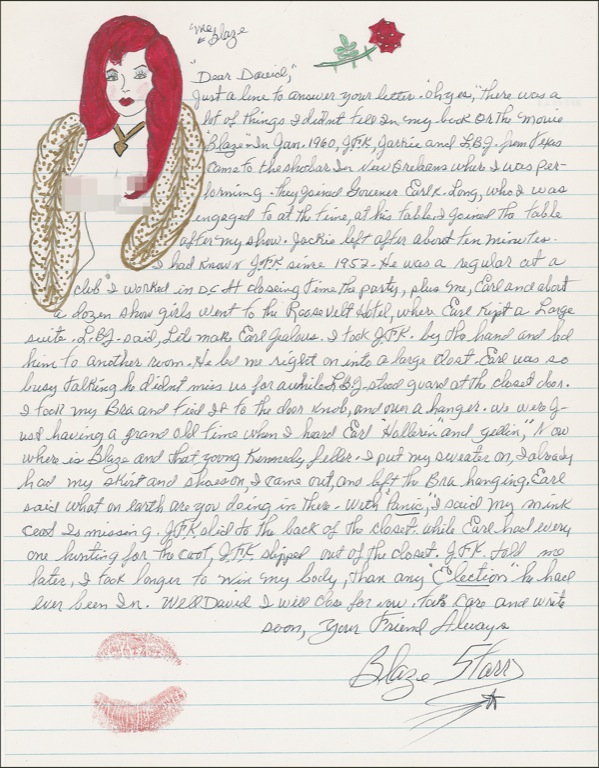 "me Blaze
"Dear David,"
Just a line to answer your letter. "Oh yes," there was a
lot of things I didnt tell In my book OR the Movie
"Blaze" In Jan. 1960, J.F.K, Jackie and L.B.J. from Texas
came to the shobar In New Orleans where I was per-
forming. they joined Governer Earl K. Long, who I was
engaged to at the time, at his table. I joined the table
after my show. Jackie left after about ten minutes.
I had known J.F.K since 1952. He was a regular at a
club I worked in D.C. At closing time the party, plus me, Earl and about
a dozen show girls went to the Roosevelt Hotel, where Earl kept a Large
suite. L.B.J. said, Lets make Earl jealous. I took J.F.K. by the hand and led
him to another room. He led me right on into a large closet. Earl was so
busy talking he didnt miss us for awhile L.B.J. stood guard at the closet door.
I took my Bra and tied It to the door knob, and over a hanger. we were J-
ust having a grand old time when I heard Earl "Hollerin" and yellin," Now
where is Blaze and that young Kennedy feller. I put my sweater on, I already
had my skirt and shoes on, I came out, and left the Bra hanging. Earl
said what on earth are you doing in there. With "Panic," I said my mink
coat Is missing. J.F.K slid to the back of the closet. while Earl had every
one hunting for the coat, J.F.K. slipped out of the closet. J.F.K. told me
later, I took longer to win my body, than any "Election" he had
ever been In. Well David I will close for now. take care and write
soon, Your Friend Always
Blaze Starr